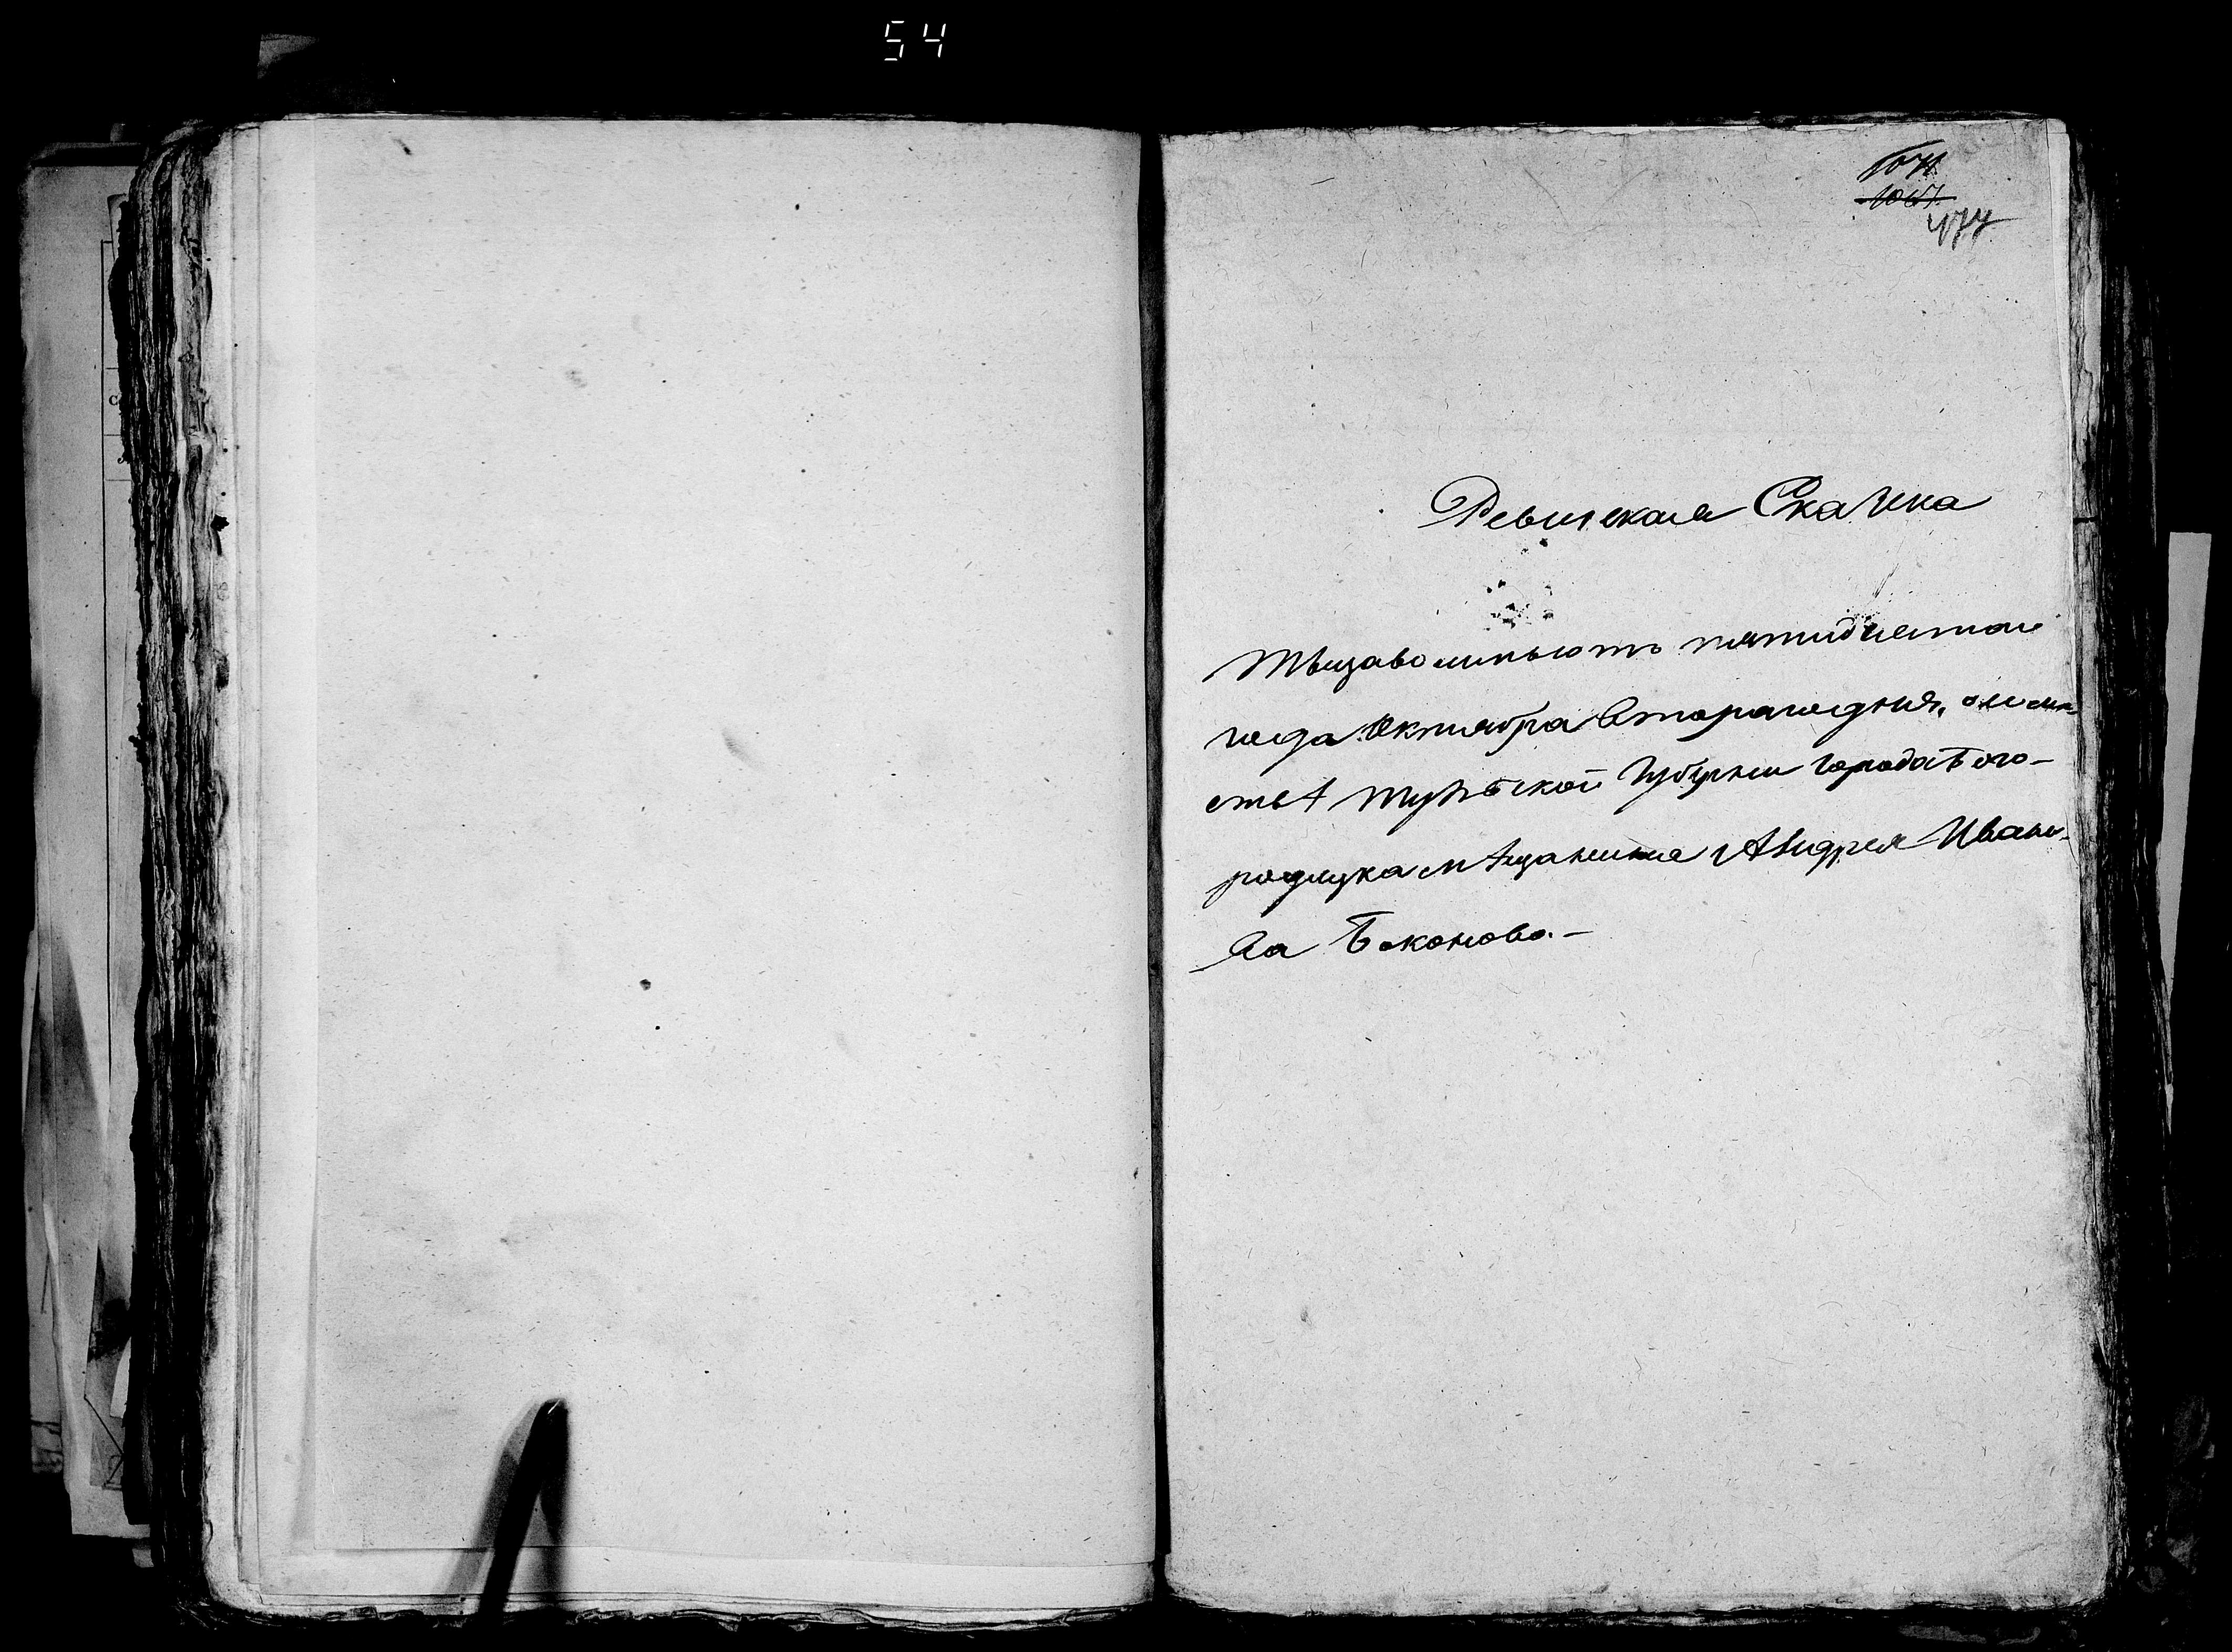 54
1071
1067
477
Ревизская Сказка
Тысяча восемьсот пятидесятаго
года Октября втораго дня, о
Тульской Губернии города Бого-
родицка мѣщанина Андрея Ивано-
ва Боконова.-